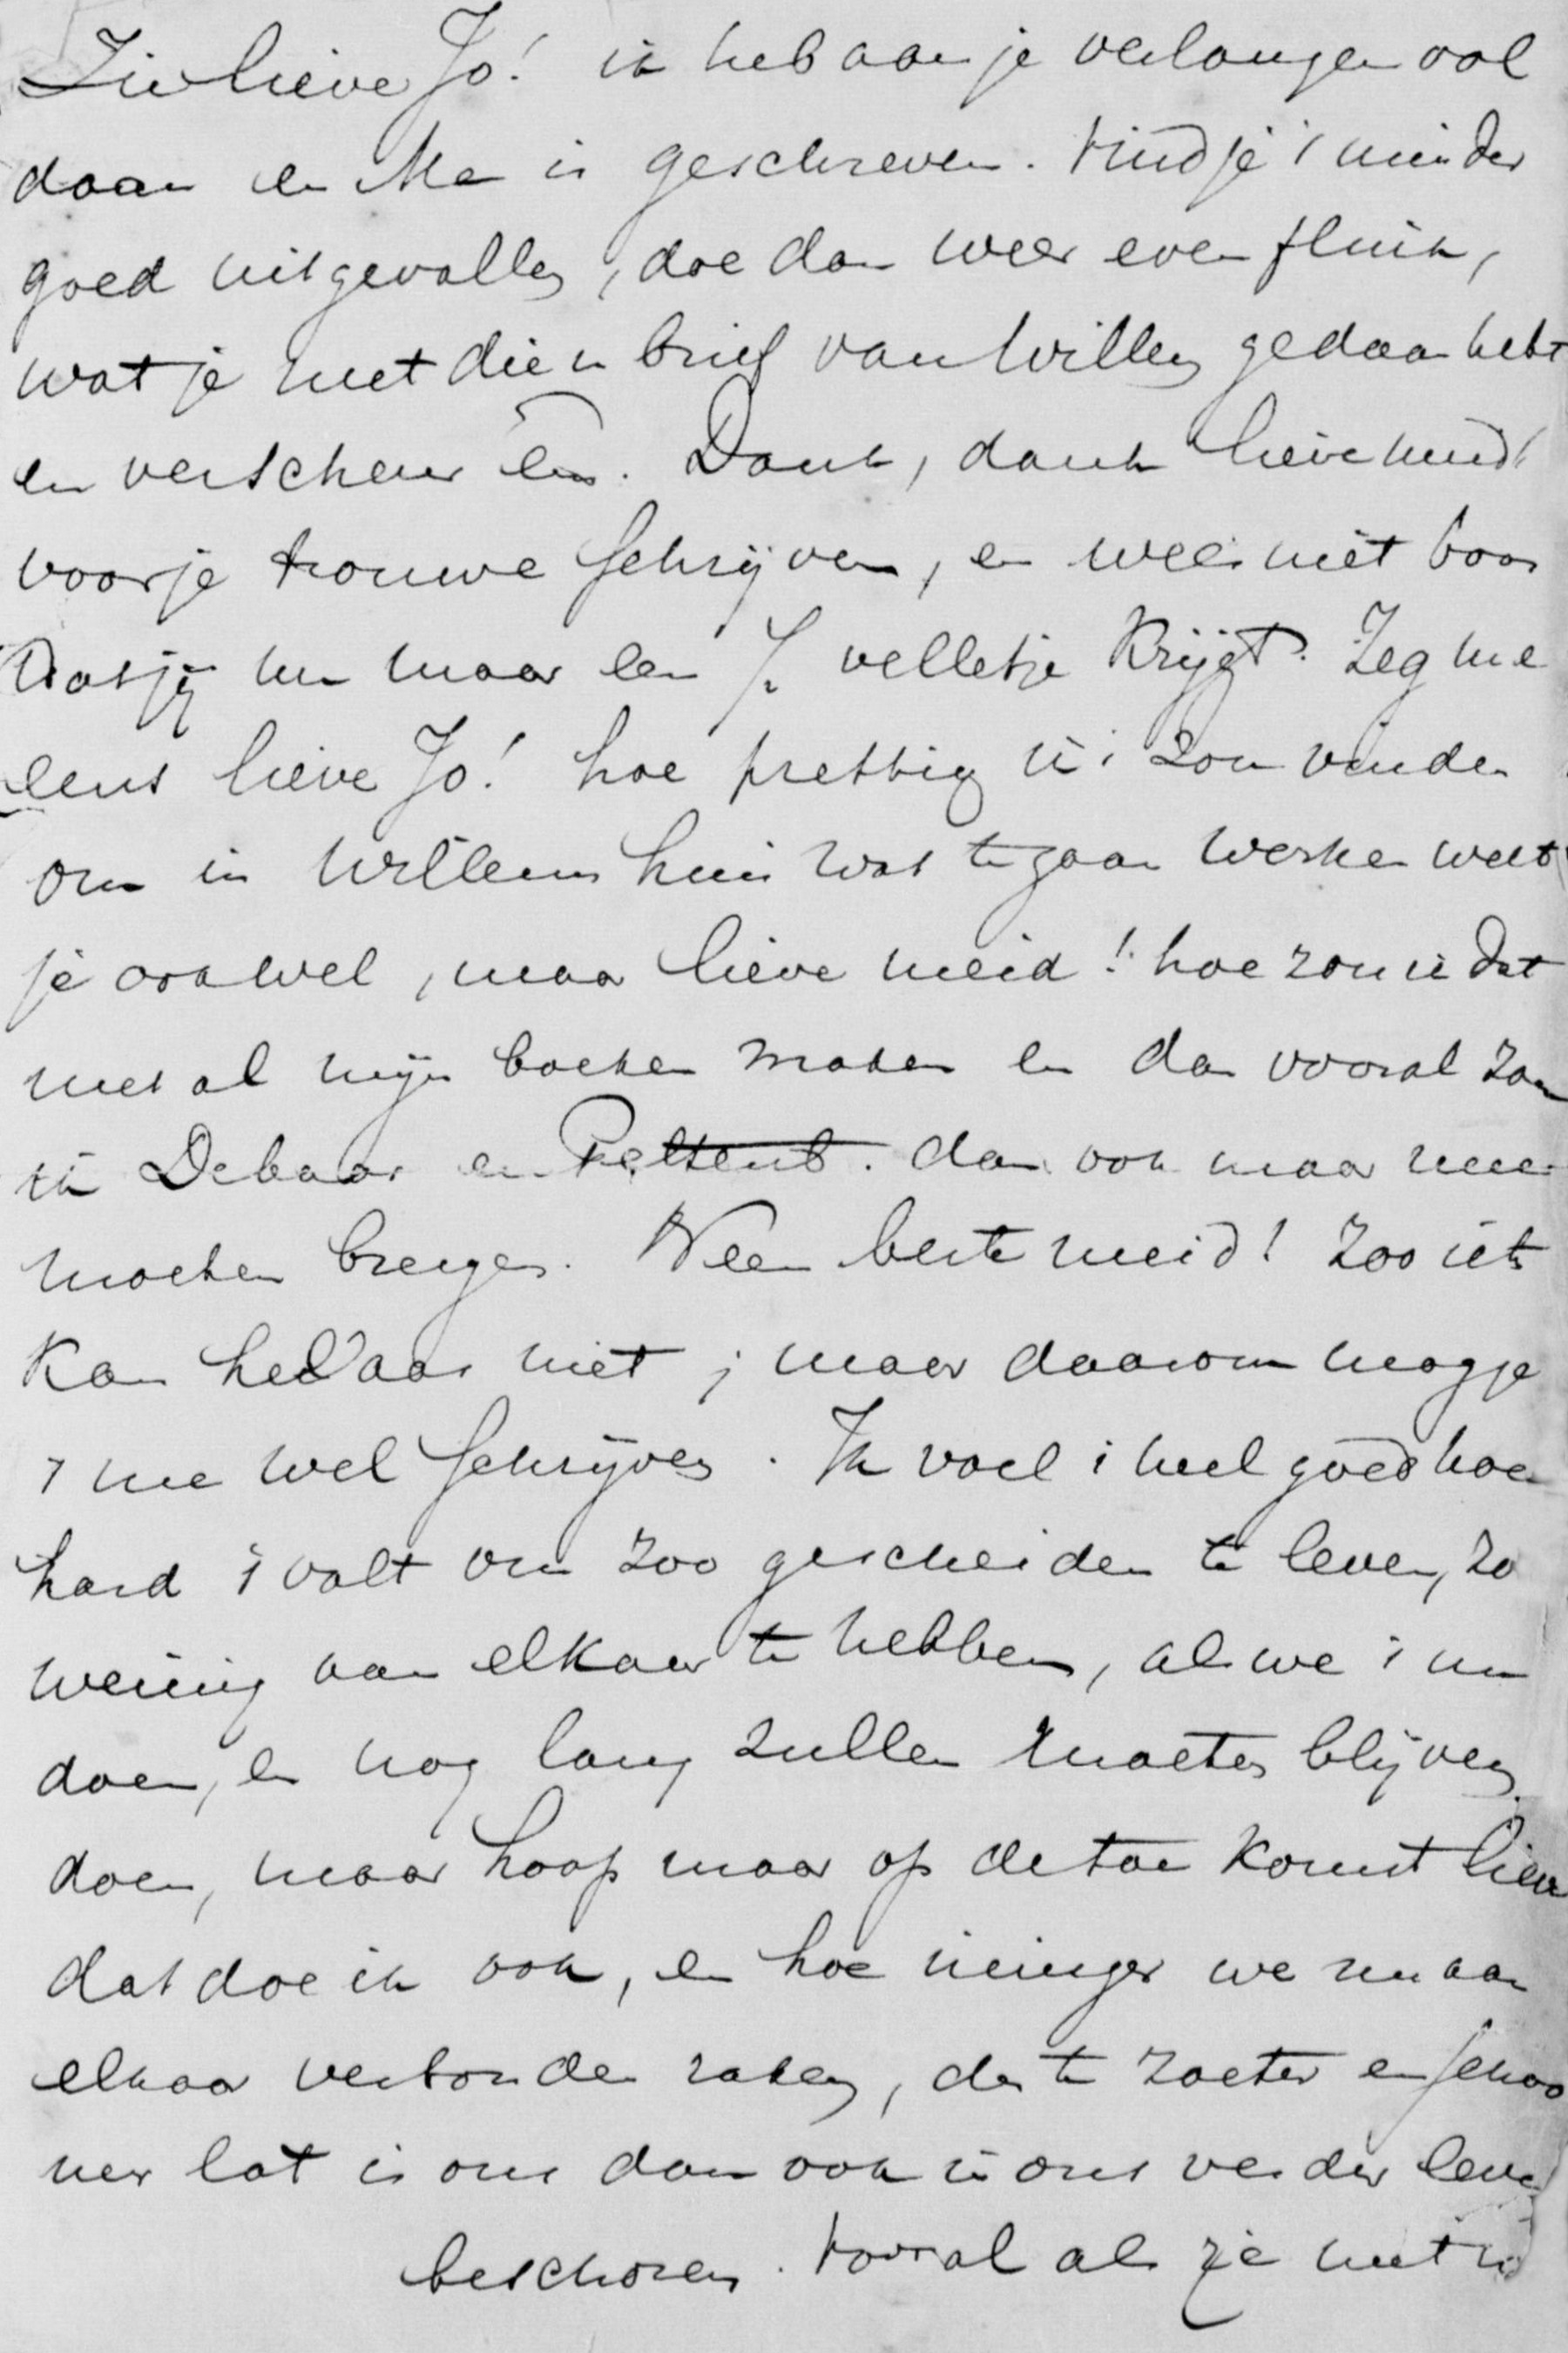 Zie lieve Jo! ik heb aan je verlangen vol
daan en Ma is geschreven. Vind je 't minder
goed uitgevallen, doe dan weer even flink,
wat je met dien brief van Willem gedaan hebt
en verscheur 'em. Dank, dank lieve kind!
voor je trouwe schrijven, en wees niet boos
dat jij nu maar een ½ velletje krijgt. Zeg me
eens lieve Jo! hoe prettig ik 't zou vinden
om in Willems huis wat te gaan werken weet
je ook wel, maar lieve meid! hoe zou ik dat
met al mijn boeken maken en dan vooral zou
ik Debaar en dan ook maar mee
moeten brengen. Neen beste meid! Zoo iets
kan heusch niet; maar daarom mag je
't me wel schrijven. Ik voel 't heel goed hoe
hard 't valt om zoo gescheiden te leven, zo
weinig aan elkaar te hebben, als we 't nu
doen, en nog lang zullen moeten blijven
doen, maar hoop maar op de toekomst lieve
dat doe ik ook, en hoe inniger we nu aan
elkaar verbonden raken, des te zoeter en schoo
ner lot is ons dan ook in ons verder leven
beschoren. Vooral als je met